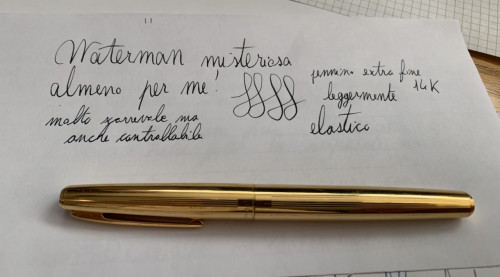 Waterman misteriosa
almeno per me!
molto scorrevole ma
anche controllabile
pennino extra fine
14K
leggermente
elastico